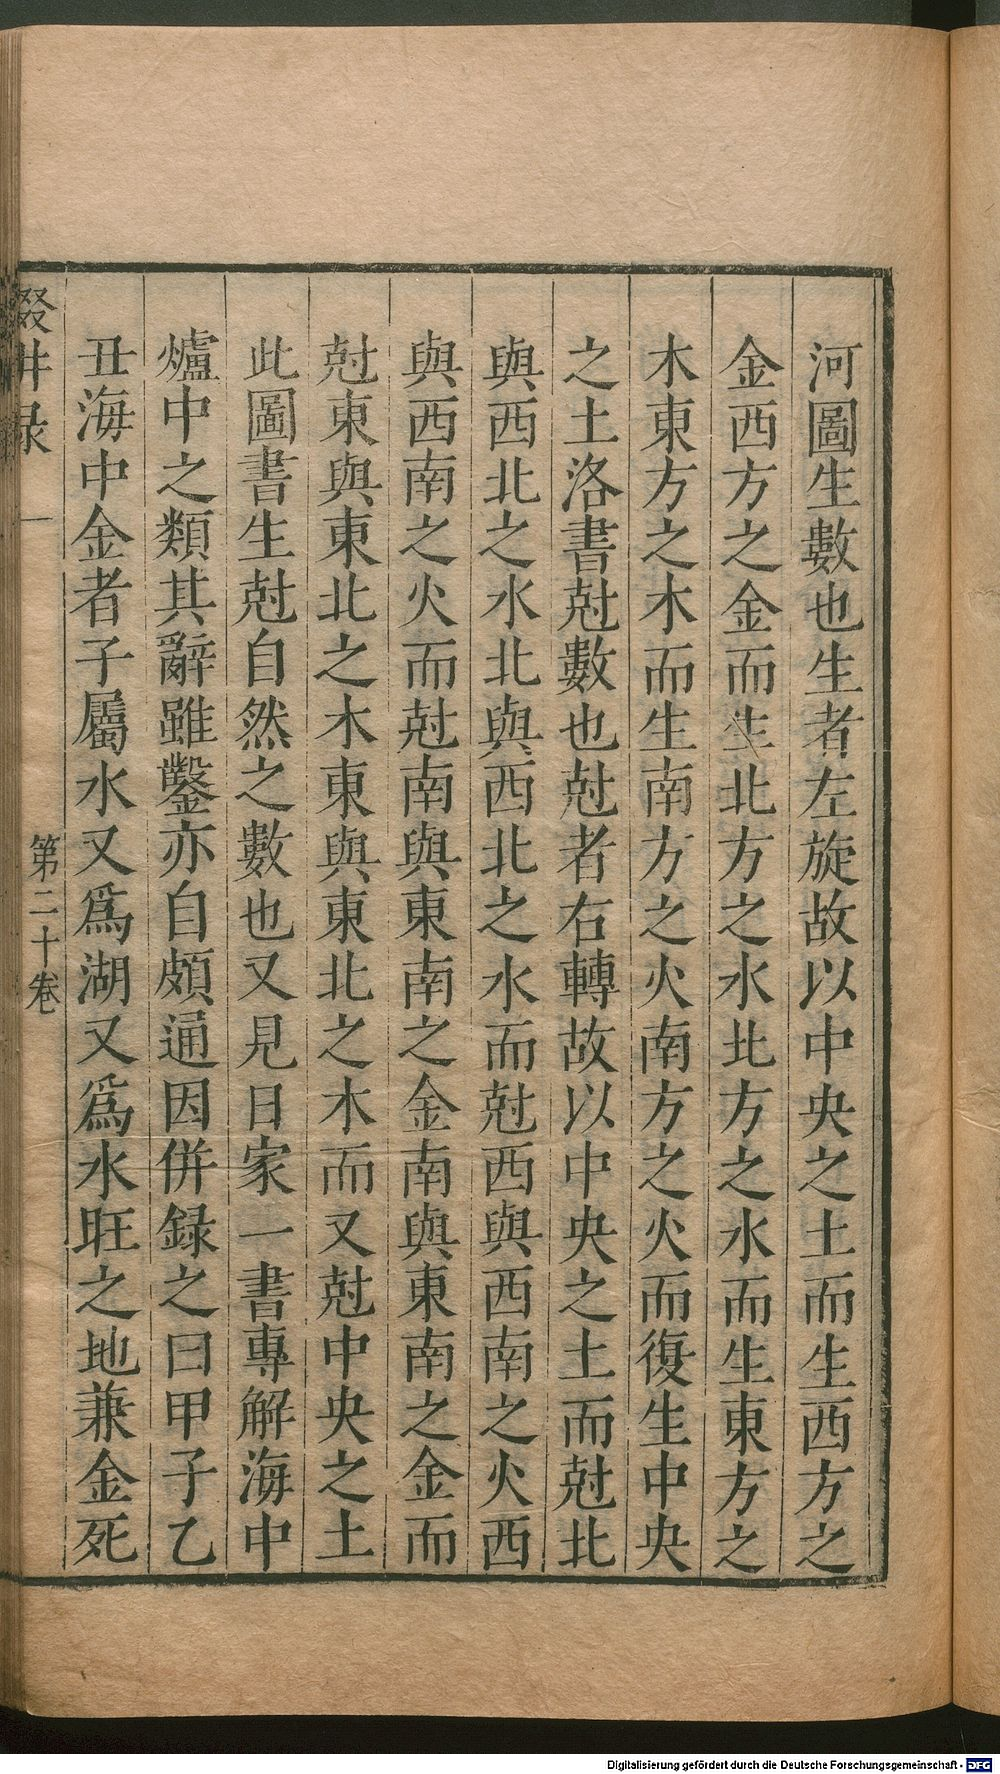 河圖生數也生者左旋故以中央之土而生西方之
金西方之金而生北方之水北方之水而生東方之
木東方之木而生南方之火南方之火而復生中央
之土洛書尅數也尅者右轉故以中央之土而尅北
與西北之水北與西北之水而尅西與西南之火西
與西南之火而尅南與東南之金南與東南之金而
尅東與東北之木東與東北之木而又尅中央之土
此圖書生尅自然之數也又見日家一書專解海中
爐中之類其辭雖鑿亦自頗通因併録之曰甲子乙
丑海中金者子屬水又爲湖又爲水旺之地兼金死
畊录 一 第二十卷
Digitalisierung gefördert durch die Deutsche Forschungsgemeinschaft - DFG